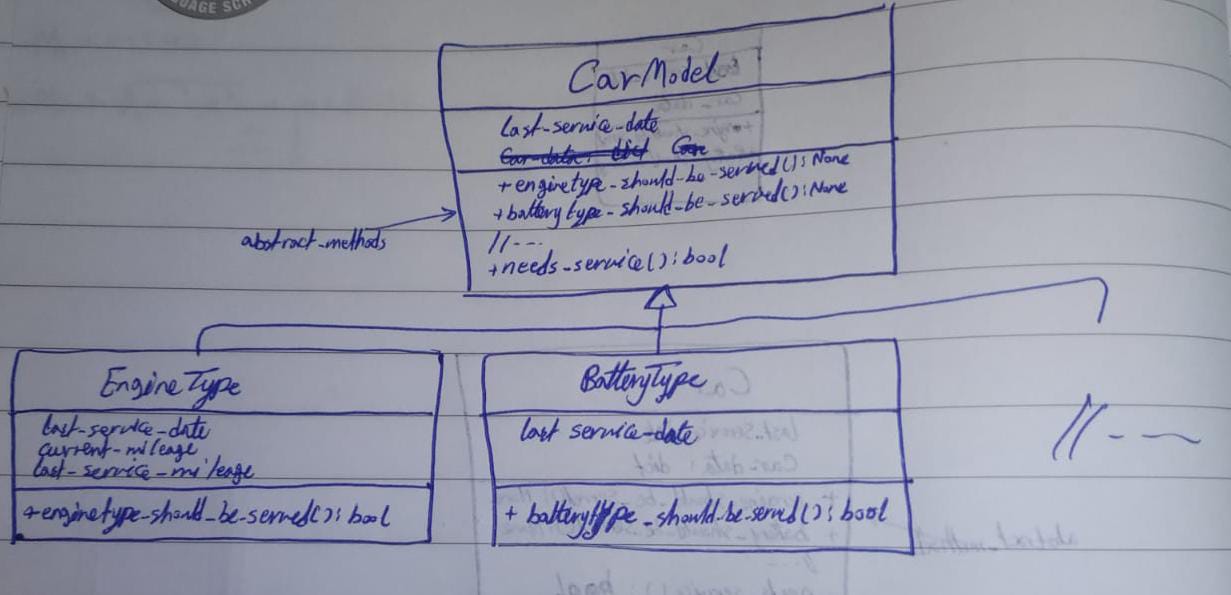 UAGE SCH
CarModel
last-service-date
Car-data: dict Car
+enginetype-should-be-served(): None
+batterytype-should-be-served(): None
//---
+needs-service(): bool
abstract-methods
EngineType
last-service-date
current-mileage
last-service-mileage
+enginetype-should-be-served(): bool
BatteryType
last service-date
+ batterytype-should-be-served(): bool
//---